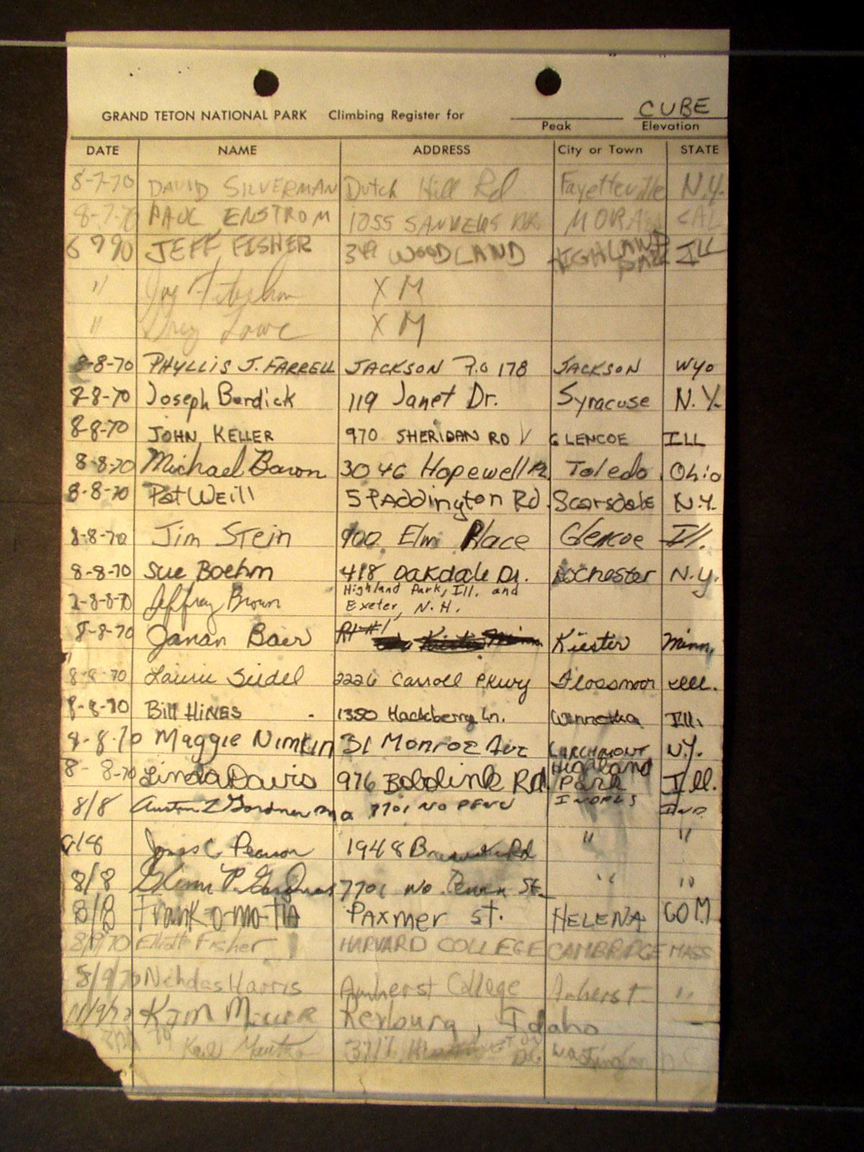 CUBE
GRAND TETON NATIONAL PARK Climbing Register for
Peak Elevation
DATE NAME ADDRESS City or Town STATE
8-7-70 DAVID SILVERMAN Dutch Hill Rd Fayetteville N.Y.
8-7-70 PAUL ENSTROM 1055 SANDERS DR. MORAGA CAL
JEFF FISHER 349 WOODLAND HIGHLAND PARK ILL
" Joy X M
" Greg Lowe X M
8-8-70 PHYLLIS J. FARRELL JACKSON P.O 178 JACKSON WYO
8-8-70 Joseph Burdick 119 Janet Dr. Syracuse N.Y.
8-8-70 JOHN KELLER 970 SHERIDAN RD GLENCOE ILL
8-8-70 Michael Baron 3046 Hopewell Pl. Toledo Ohio
8-8-70 Pat Weill 5 PADDington Rd. Scarsdale N.Y.
8-8-70 Jim Stein 900 Elm Place Glencoe Ill.
8-8-70 Sue Boehm 418 Oakdale Dr. Rochester N.Y.
8-8-70 Jeffrey Brown Highland Park, Ill. and
Exeter, N.H.
8-8-70 Janan Baer Rt #1 Kiester Minn.
8-8-70 Laurie Seidel 2226 Carroll Pkwy Flossmoor Ill.
8-8-70 Bill HINES 1350 Hackberry Ln. Winnetka Ill.
8-8-70 Maggie Nimkin 31 Monroe Ave LARCHMONT N.Y.
8-8-70 Linda Davis 976 Bobolink Rd. Highland Park Ill.
8/8 Austin L Gardner 7701 NO PENN INDPLS IND
8/8 James C Pearson 1948 " "
8/8 7701 No. Penn St. " "
8/8 Frank-o-ma-TIA PAXMER ST. HELENA
8/9/70 Elliott Fisher HARVARD COLLEGE CAMBRIDGE MASS
8/9/70 Harris Amherst College Amherst "
Kam Miller Rexburg, Idaho
Karl 3717 Washington D.C.